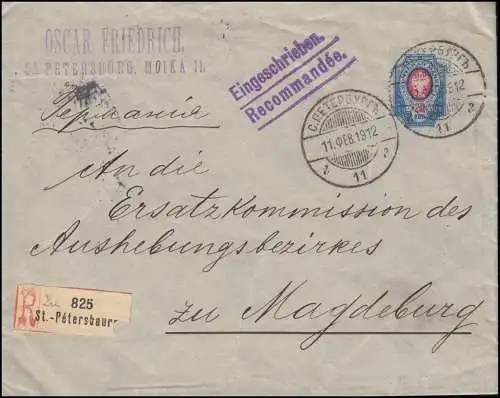 OSCAR FRIEDRICH.
St. PETERSBOURG, MOIKA 11.
Eingeschrieben.
Recommandée.
Германія
С.ПЕТЕРБУРГЪ
11.ФЕВ.1912
11
1912
11
An die
Ersatzkommission des
Aushebungsbezirkes
zu Magdeburg
R
825
St.-Pétersbourg